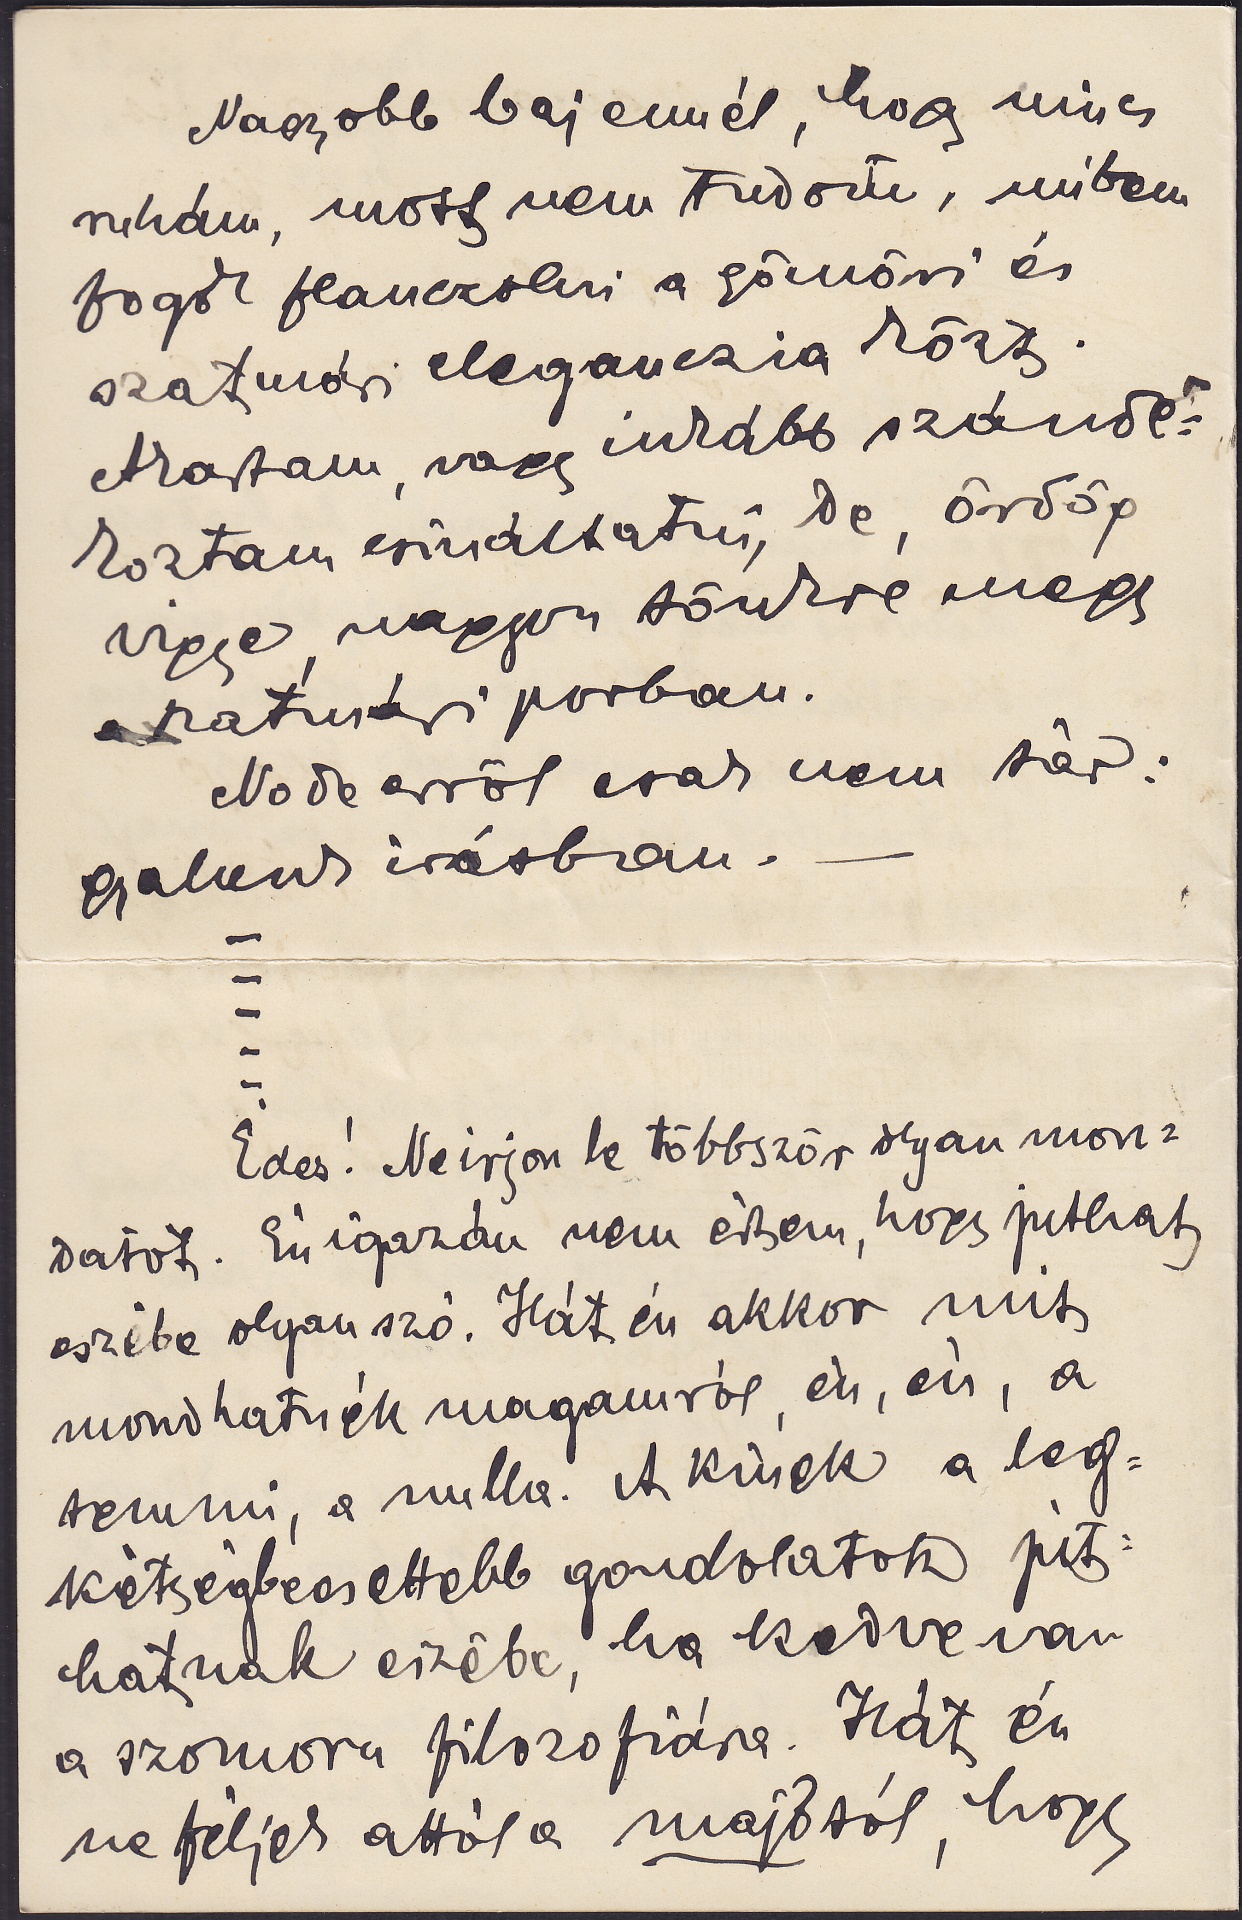 Nagyobb baj ennél, hogy nincs
ruhám, most nem tudom, miben
fogok flanczolni a gömöri és
szatmári elegánczia közt.
Akartam, vagy inkább szándé=
koztam csináltatni, de, ördög
vigye, nagyon tönkre megy
a szatmári porban.
No de erről csak nem tár=
gyalunk írásban. —
Édes! Ne irjon le többször olyan mon=
datot. Én igazán nem értem, hogy juthat
eszébe olyan szó. Hát én akkor mit
mondhatnék magamról, én, én, a
semmi, a nulla. A kinek a leg=
kétségbeesettebb gondolatok jut=
hatnak eszébe, ha kedve van
a szomoru filozofiára. Hát én
ne féljek attól a majdtól, hogy